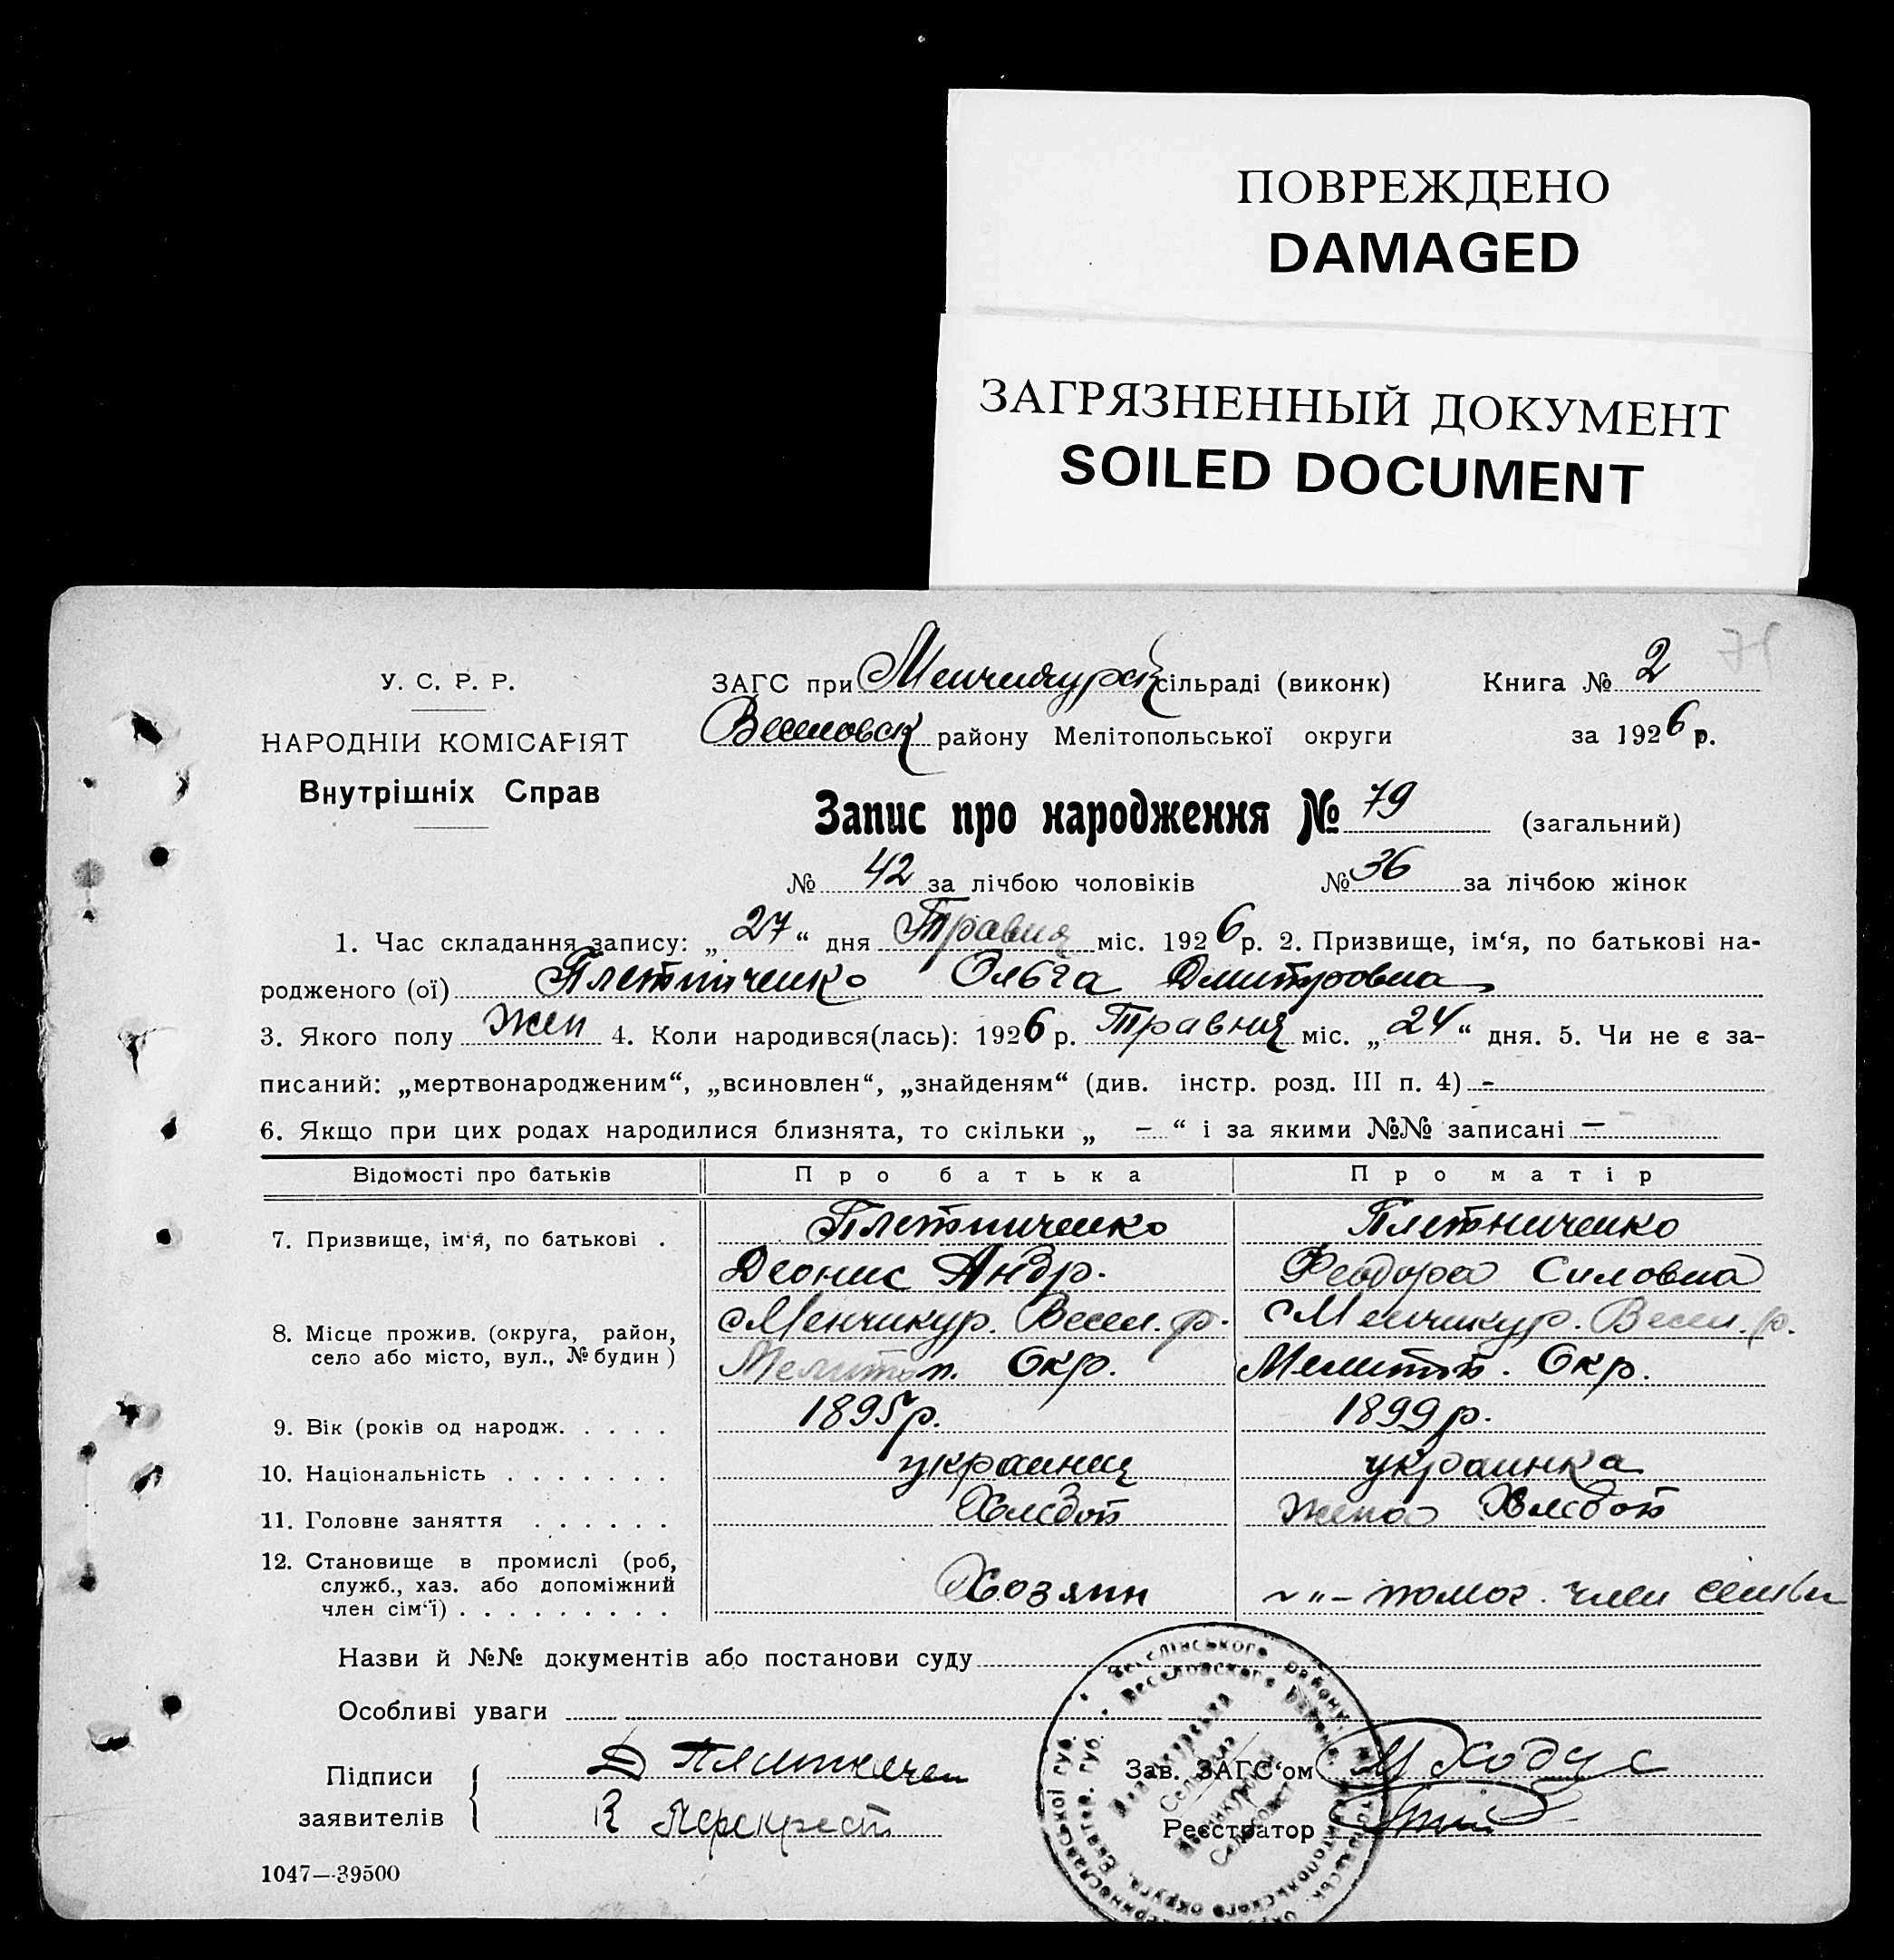 ПОВРЕЖДЕНО
DAMAGED
ЗАГРЯЗНЕННЫЙ ДОКУМЕНТ
SOILED DOCUMENT
У. С. Р. Р.
НАРОДНІЙ КОМІСАРІЯТ
Внутрішніх Справ
ЗАГС при Менчикурск сільраді (виконк) Книга № 2
Веселовск району Мелітопольської округи за 1926 р.
Запис про народження № 79 (загальний)
№ 42 за лічбою чоловіків № 36 за лічбою жінок
1. Час складання запису: „27“ дня Травня міс. 1926 р. 2. Призвище, ім‘я, по батькові на-
родженого (ої) Плетниченко Ольга Дмитровна
3. Якого полу Жен 4. Коли народився(лась): 1926 р. Травня міс. „24“ дня. 5. Чи не є за-
писаний: „мертвонародженим“, „всиновлен“, „знайденям“ (див. інстр. розд. III п. 4) -
6. Якщо при цих родах народилися близнята, то скільки „ - “ і за якими №№ записані —
Відомості про батьків Про батька Про матір
7. Призвище, ім‘я, по батькові . Плетниченко Плетниченко
Деонис Андр. Феодора Силовна
8. Місце прожив. (округа, район, село або місто, вул., № будин) с Менчикур. Весел. р. с Менчикур. Весел. р.
Мелитоп. Окр. Мелитоп. Окр.
9. Вік (років од народж. . . . . 1895 р. 1899 р.
10. Національність . . . . . . . украинец украинка
11. Головне заняття . . . . . . Хлебоп жена Хлебоп
12. Становище в промислі (роб, служб., хаз. або допоміжний член сім‘ї) . . . . . . . . . Хозяин ~ " – помог. член семьи
Назви й №№ документів або постанови суду
Особливі уваги
Підписи заявителів
Д Плетничен
R Перекрест
Зав. ЗАГС‘ом М Ходус
Реєстратор
1047—39500